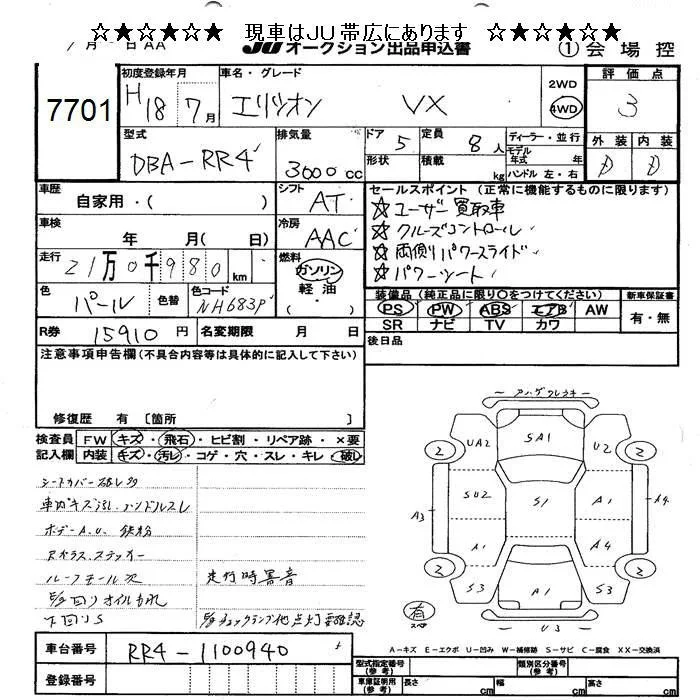 ☆★☆★☆★☆ 現車はJU帯広にあります ☆★☆★☆★☆
月 日 AA JU オークション出品申込書 ① 会場控
7701
初度登録年月 H18 7月
車名・グレード エリシオン VX
2WD
4WD
評価点 3
型式 DBA-RR4
排気量 3000cc
ドア 5
形状
定員 8人
積載 kg
ディーラー・並行
モデル年式 年
ハンドル 左・右
外装 内装
D D
車歴 自家用・( )
シフト AT
車検 年 月( 日)
冷房 AAC
走行 21万0千980km
燃料 ガソリン・軽油・( )
色 パール
色替
色コード NH683P
R券 15910円
名変期限 月 日
セールスポイント(正常に機能するものに限ります)
☆ユーザー買取車
☆クルーズコントロール
☆両側パワースライド
☆パワーシート
装備品(純正品に限り○をつけてください)
PS PW ABS エアB AW
SR ナビ TV カワ
新車保証書 有・無
後日品
注意事項申告欄(不具合内容等は具体的に記入して下さい)
修復歴 有 〔箇所 〕
検査員記入欄
FW キズ・飛石・ヒビ割・リペア跡・×要
内装 キズ・汚レ・コゲ・穴・スレ・キレ・破レ
シートカバー破レ多
車内キズ汚レ.ハンドルスレ
ボデーA.U.鉄粉
Rガラス.ステッカー
ルーフモール欠
走行時異音
下回りS
車台番号 RR4-1100940
登録番号
UA2 SA1 U2
2 2
A3 SU2 S1 A1 A4
A1 A4
2 2
S3 A1 S3
U3
有
スペア
A-キズ E-エクボ U-凹み W-補修跡 S-サビ C-腐食 XX-交換済
型式指定番号(参考) 類別区分番号(参考)
車庫証明用(参考) 長さ cm 幅 cm 高さ cm